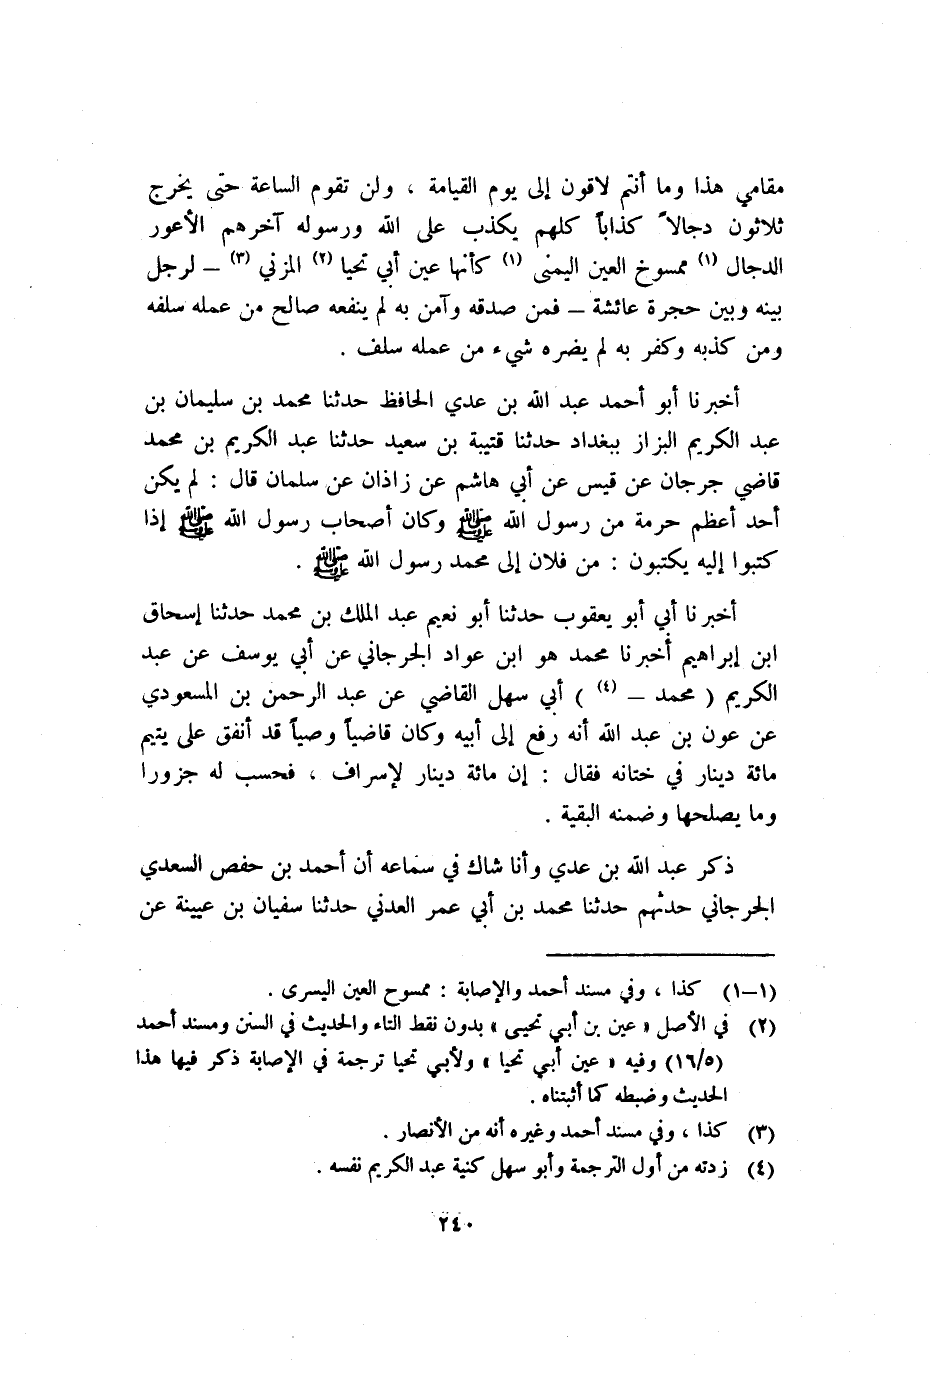 مقامي هذا وما أنتم لاقون إلى يوم القيامة ، ولن تقوم الساعة حتى يخرج
ثلاثون دجالاً كذاباً كلهم يكذب على الله ورسوله آخرهم الأعور
الدجال (١) ممسوخ العين اليمنى (١) كأنها عين أبي تحيا (٢) المزني (٣) ــ لرجل
بينه وبين حجرة عائشة ــ فمن صدقه وآمن به لم ينفعه صالح من عمله سلفه
ومن كذبه وكفر به لم يضره شيء من عمله سلف .
أخبرنا أبو أحمد عبد الله بن عدي الحافظ حدثنا محمد بن سليمان بن
عبد الكريم البزاز ببغداد حدثنا قتيبة بن سعيد حدثنا عبد الكريم بن محمد
قاضي جرجان عن قيس عن أبي هاشم عن زاذان عن سلمان قال : لم يكن
أحد أعظم حرمة من رسول الله ﷺ وكان أصحاب رسول الله ﷺ إذا
كتبوا إليه يكتبون : من فلان إلى محمد رسول الله ﷺ .
أخبرنا أبي أبو يعقوب حدثنا أبو نعيم عبد الملك بن محمد حدثنا إسحاق
ابن إبراهيم أخبرنا محمد هو ابن عواد الجرجاني عن أبي يوسف عن عبد
الكريم ( محمد ــ (٤) ) أبي سهل القاضي عن عبد الرحمن بن المسعودي
عن عون بن عبد الله أنه رفع إلى أبيه وكان قاضياً وصياً قد أنفق على يتيم
مائة دينار في ختانه فقال : إن مائة دينار لإسراف ، فحسب له جزورا
وما يصلحها وضمنه البقية .
ذكر عبد الله بن عدي وأنا شاك في سماعه أن أحمد بن حفص السعدي
الجرجاني حدثهم حدثنا محمد بن أبي عمر العدني حدثنا سفيان بن عيينة عن
(١–١) كذا ، وفي مسند أحمد والإصابة : ممسوح العين اليسرى .
(٢) في الأصل « عين بن أبي تحيى » بدون نقط التاء والحديث في السنن ومسند أحمد
(١٦/٥) وفيه « عين أبي تحيا » ولأبي تحيا ترجمة في الإصابة ذكر فيها هذا
الحديث وضبطه كما أثبتناه .
(٣) كذا ، وفي مسند أحمد وغيره أنه من الأنصار .
(٤) زدته من أول الترجمة وأبو سهل كنية عبد الكريم نفسه .
٢٤٠